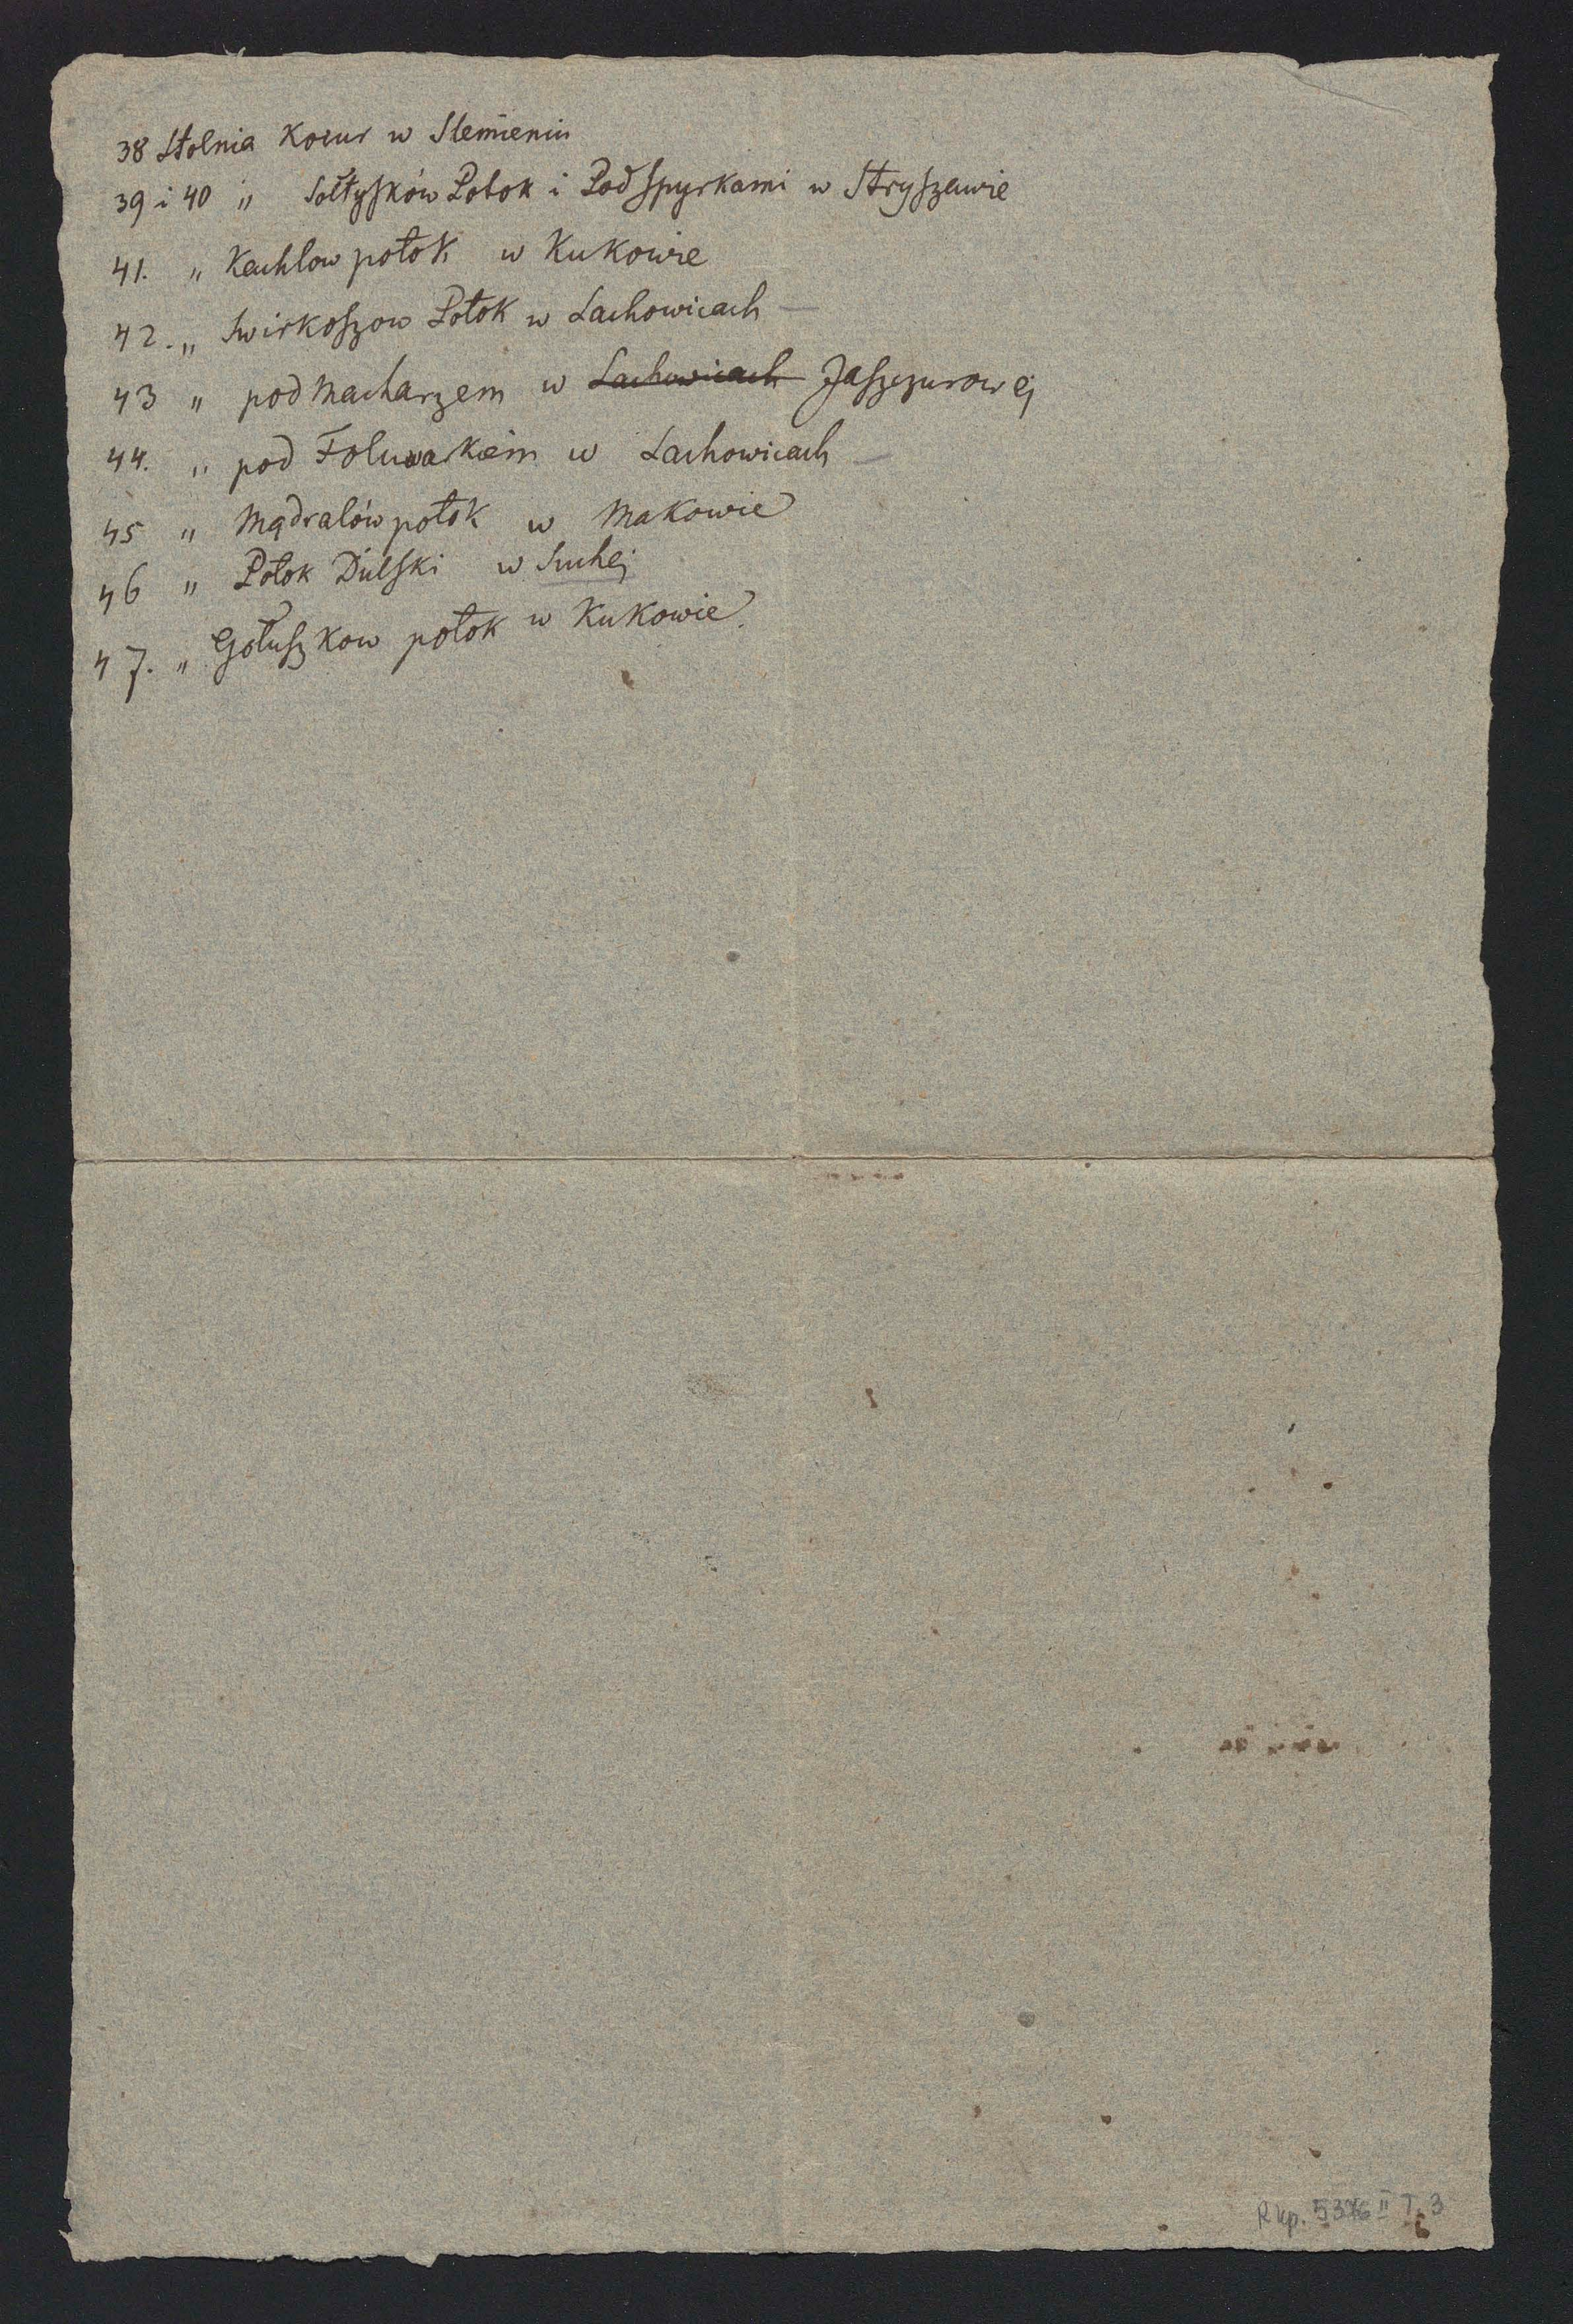 38 Stolnia Kocur w Slemieniu
39 i 40 „ Sołtysków Potok i Pod Spyrkami w Stryszawie
41. „ Kachlow potok w Kukowie
42. „ Swirkoszow Potok w Lachowicach —
43 „ pod Macharzem w Lachowicach Jaszczurowej
44. „ pod Folwarkiem w Lachowicach —
45 „ Mądralów potok w Makowie
46 „ Potok Dulski w Suchej
47. „ Gołuszkow potok w Kukowie.
Rkp. 5376 II T. 3